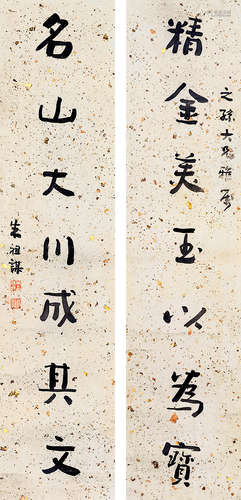 之
大兄雅屬
精金美玉以為寶
名山大川成其文
朱祖謀